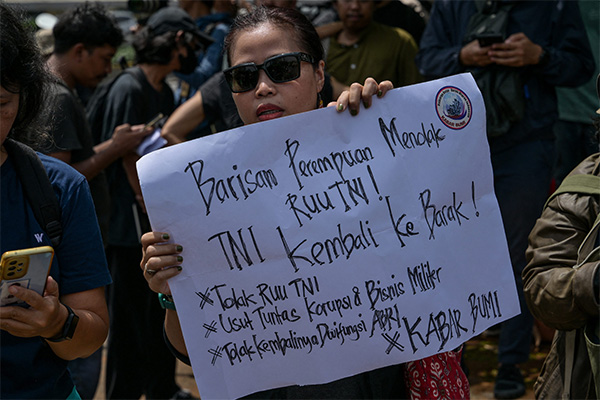 Barisan Perempuan Menolak
RUU TNI!
TNI Kembali Ke Barak!
Tolak RUU TNI
Usut Tuntas Korupsi & Bisnis Militer
Tolak Kembalinya Dwifungsi ABRI
KABAR BUMI